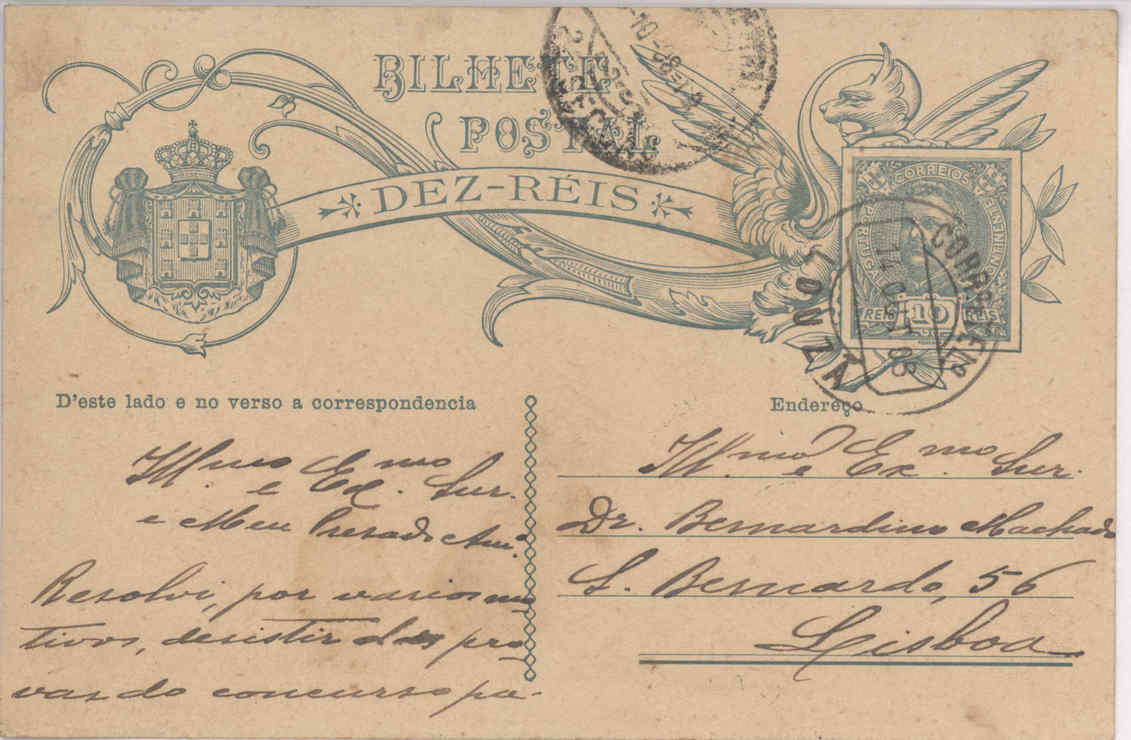 BILHETE
POSTAL
DEZ-RÉIS
CORREIOS
PORTUGAL
CONTINENTE
REIS 10 REIS
LOUZÃ
D'este lado e no verso a correspondencia
Ill.mo e Ex.mo Snr.
e Meu Presado Am.º
Resolvi, por varios mo
tivos, desistir das pro-
vas do concurso pa-
Endereço
Ill.mo e Ex.mo Snr.
Dr. Bernardino Machado
S. Bernardo, 56
Lisboa